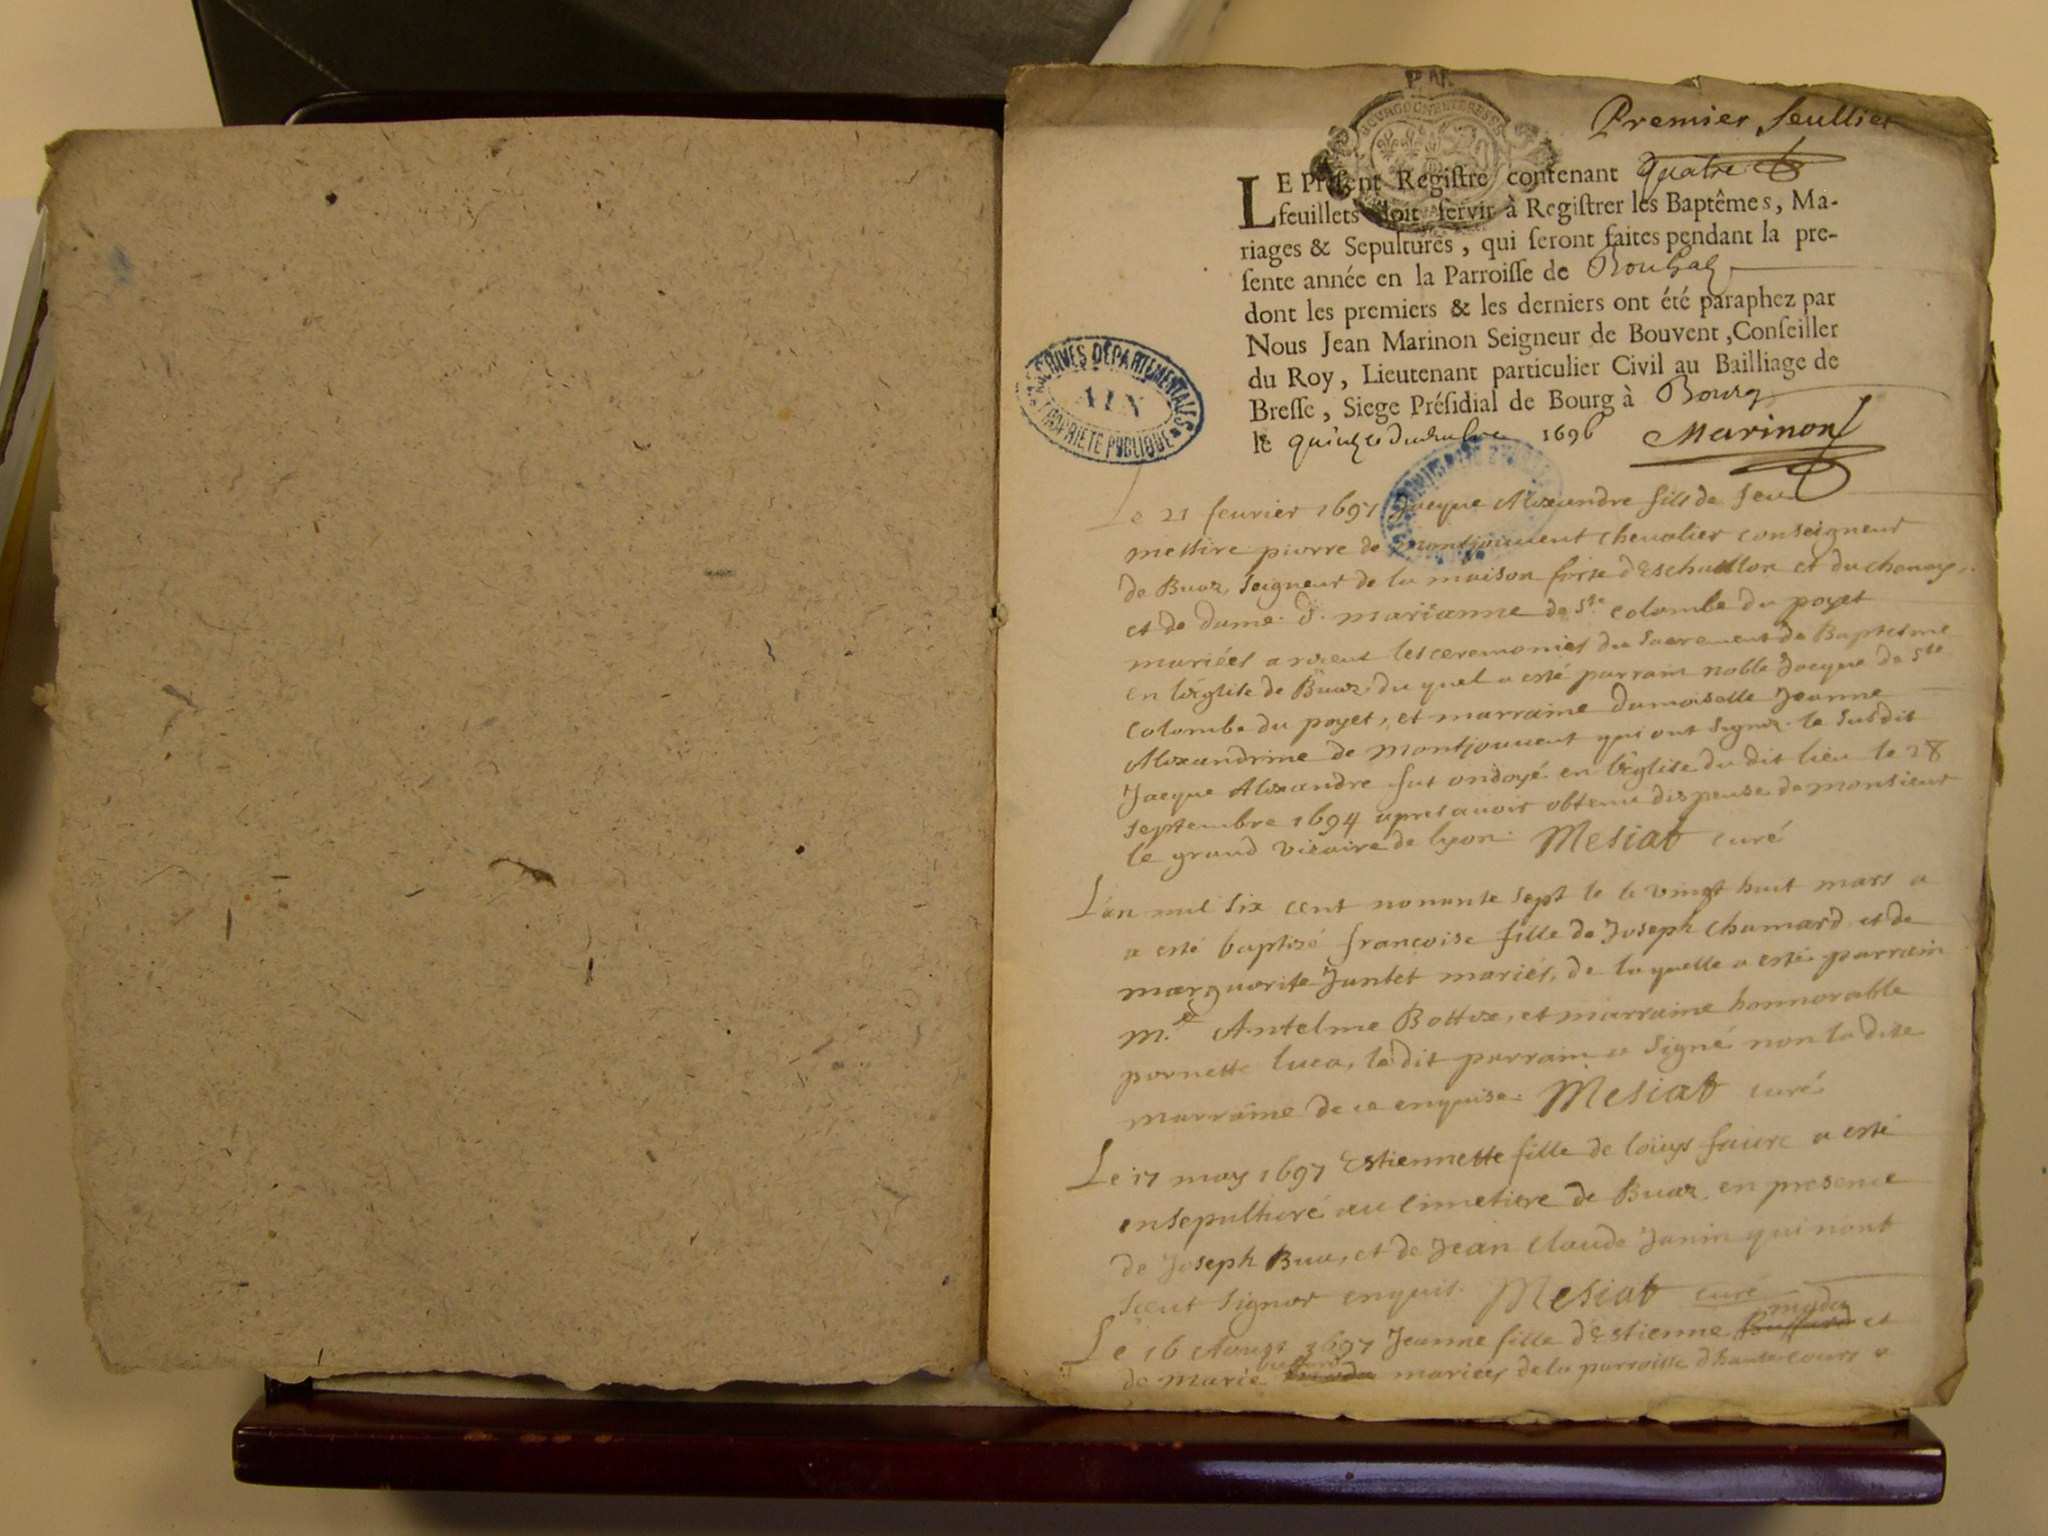 Premier feullier
LE Preſent Regiſtre contenant quatre
feuillets doit ſervir à Regiſtrer les Baptêmes, Ma-
riages & Sepultures, qui ſeront faites pendant la pre-
ſente année en la Parroiſſe de
dont les premiers & les derniers ont été paraphez par
Nous Jean Marinon Seigneur de Bouvent, Conſeiller
du Roy, Lieutenant particulier Civil au Bailliage de
Breſſe, Siege Préſidial de Bourg à Bourg
le quinze 1696 Marinon
ARCHIVES DÉPARTEMENTALES
AIN
PROPRIÉTÉ PUBLIQUE
Le 21 feurier 1697 Jacque Alexandre fils de feu
messire pierre de montjouuent cheualier conseigneur
de Buar, seigneur de la maison forte d'Eschallon et du chanay
et de dame d. marianne de Ste colombe du poyet
mariées a receut les ceremonies du sacrement de Baptesme
en l'église de Buar, du quel a esté parrain noble Jacque de Ste
colombe du poyet, et marraine damoiselle Jeanne
Alexandrine de montjouuent qui ont signez le susdit
Jacque Alexandre fut ondoyé en l'église du dit lieu le 28
septembre 1694 apres auoir obtenu dispense de monsieur
le grand vicaire de lyon. Mesiat curé
L'an mil six cent nonante sept le le vingt huit mars a
a esté baptisé francoise fille de Joseph chamard et de
marguerite Juntet mariés, de la quelle a esté parrain
m.e Antelme Bottex, et marraine honnorable
pernette luca, le dit parrain a signé non la dite
marraine de ce enquise. Mesiat curé
Le 17 may 1697 Estiennette fille de loüys faiure a esté
ensepulturé au cimetiere de Buar en presence
de Joseph Bua, et de Jean claude Janin qui n'ont
sceut signer enquis. Mesiat curé
Le 16 Aoust 1697 Jeanne fille d'Estienne et
de marie mariées de la parroisse d'hautecourt a